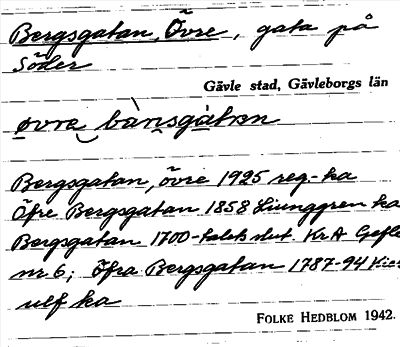 Bergsgatan, Övre, gata på
Söder
Gävle stad, Gävleborgs län
øvra bàn̩sgàtn
Bergsgatan, övre 1925 reg.-ka
Öfre Bergsgatan 1858 Ljunggren ka
Bergsgatan 1700-talets slut. Kr.A Gefle
nr 6; Öfra Bergsgatan 1787-94
ulf ka
FOLKE HEDBLOM 1942.